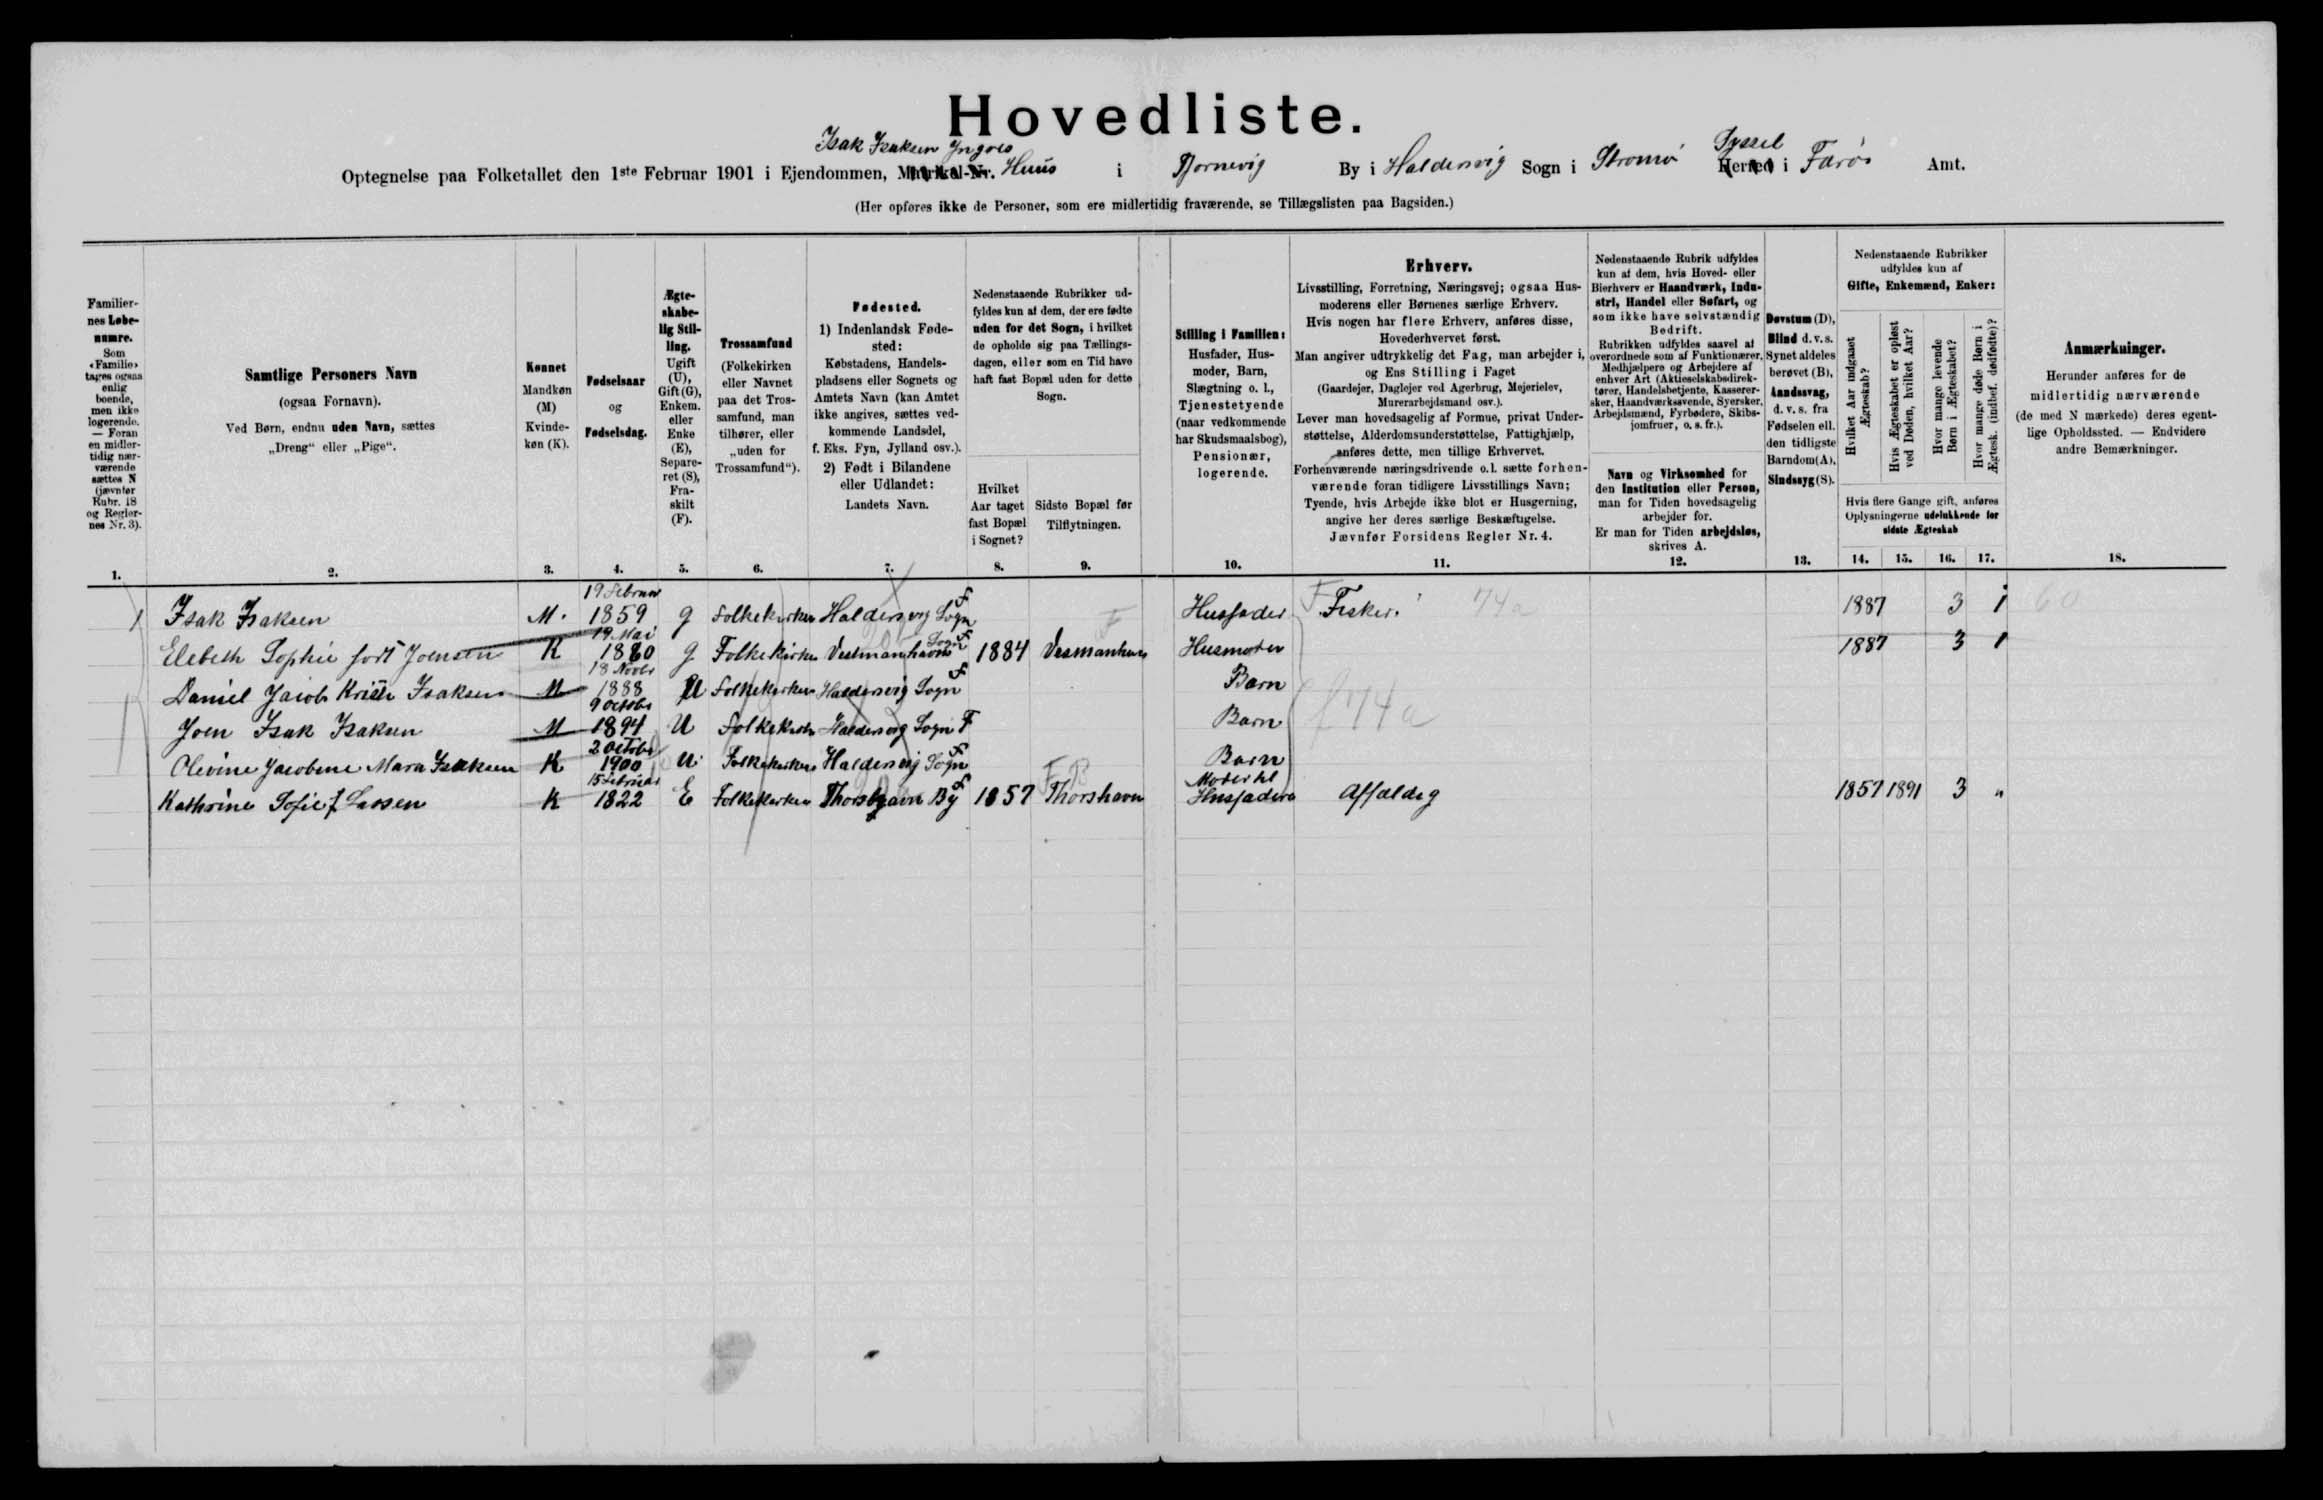 Hovedliste.
Isak Isaksen Yngres Syssel
Optegnelse paa Folketallet den 1ste Februar 1901 i Ejendommen, Matrikel-Nr. Huus i Tjornevig By i Haldersvig Sogn i Stromø Herred i Farös Amt.
(Her opføres ikke de Personer, som ere midlertidig fraværende, se Tillægslisten paa Bagsiden.)
Familiernes Løbenumre. Som «Familie» tages ogsaa enlig boende, men ikke logerende. — Foran en midlertidig nærværende sættes N (jævnfør Rubr. 18 og Reglernes Nr. 3).
Samtlige Personers Navn
(ogsaa Fornavn).
Ved Børn, endnu uden Navn, sættes
„Dreng“ eller „Pige“.
Kønnet
Mandkøn (M)
Kvindekøn (K).
Fødselsaar
og
Fødselsdag.
Ægteskabelig Stilling.
Ugift (U), Gift (G), Enkem. eller Enke (E), Separeret (S), Fraskilt (F).
Trossamfund
(Folkekirken eller Navnet paa det Trossamfund, man tilhører, eller „uden for Trossamfund“).
Fødested.
1) Indenlandsk Fødested:
Købstadens, Handelspladsens eller Sognets og Amtets Navn (kan Amtet ikke angives, sættes vedkommende Landsdel, f. Eks. Fyn, Jylland osv.).
2) Født i Bilandene eller Udlandet:
Landets Navn.
Nedenstaaende Rubrikker udfyldes kun af dem, der ere fødte uden for det Sogn, i hvilket de opholde sig paa Tællingsdagen, eller som en Tid have haft fast Bopæl uden for dette Sogn.
Hvilket Aar taget fast Bopæl i Sognet?
Sidste Bopæl før Tilflytningen.
Stilling i Familien:
Husfader, Husmoder, Barn, Slægtning o. l., Tjenestetyende (naar vedkommende har Skudsmaalsbog), Pensionær, logerende.
Erhverv.
Livsstilling, Forretning, Næringsvej; ogsaa Husmoderens eller Børnenes særlige Erhverv.
Hvis nogen har flere Erhverv, anføres disse, Hovederhvervet først.
Man angiver udtrykkelig det Fag, man arbejder i, og Ens Stilling i Faget
(Gaardejer, Daglejer ved Agerbrug, Mejerielev, Murerarbejdsmand osv.).
Lever man hovedsagelig af Formue, privat Understøttelse, Alderdomsunderstøttelse, Fattighjælp, anføres dette, men tillige Erhvervet.
Forhenværende næringsdrivende o. l. sætte forhenværende foran tidligere Livsstillings Navn;
Tyende, hvis Arbejde ikke blot er Husgerning, angive her deres særlige Beskæftigelse.
Jævnfør Forsidens Regler Nr. 4.
Nedenstaaende Rubrik udfyldes kun af dem, hvis Hoved- eller Bierhverv er Haandværk, Industri, Handel eller Søfart, og som ikke have selvstændig Bedrift.
Rubrikken udfyldes saavel af overordnede som af Funktionærer, Medhjælpere og Arbejdere af enhver Art (Aktieselskabsdirektører, Handelsbetjente, Kasserersker, Haandværkssvende, Syersker, Arbejdsmænd, Fyrbødere, Skibsjomfruer, o. s. fr.).
Navn og Virksomhed for den Institution eller Person, man for Tiden hovedsagelig arbejder for.
Er man for Tiden arbejdsløs, skrives A.
Døvstum (D), Blind d. v. s. Synet aldeles berøvet (B), Aandssvag, d. v. s. fra Fødselen ell. den tidligste Barndom (A), Sindssyg (S).
Nedenstaaende Rubrikker udfyldes kun af
Gifte, Enkemænd, Enker:
Hvilket Aar indgaaet Ægteskab?
Hvis Ægteskabet er opløst ved Døden, hvilket Aar?
Hvor mange levende Børn i Ægteskabet?
Hvor mange døde Børn i Ægtesk. (indbef. dødfødte)?
Hvis flere Gange gift, anføres Oplysningerne udelukkende for sidste Ægteskab
Anmærkninger.
Herunder anføres for de midlertidig nærværende (de med N mærkede) deres egentlige Opholdssted. — Endvidere andre Bemærkninger.
1. 2. 3. 4. 5. 6. 7. 8. 9. 10. 11. 12. 13. 14. 15. 16. 17. 18.
1 Isak Isaksen M. 19 Februar 1859 g Folkekirken Haldersvig Sogn F Husfader F Fisker. 74a 1887 3 1 60
Elsbeth Sophie fort Joensen K 19 Mai 1860 g Folkekirken Vestmanhavns Sogn F 1884 Vesmanhavn F Husmoder 1887 3 1
Daniel Jacob Kristi Isaksen M 18 Novbr 1888 U Folkekirken Haldersvig Sogn F Barn f 74a
Joen Isak Isaksen M 9 Octobr 1894 U Folkekirken Haldersvig Sogn F Barn
Olevine Jacobine Maria Isaksen K 2 Octobr 1900 U Folkekirken Haldersvig Sogn F Barn
Kathrine Sofie f Lassen K 15 Februar 1822 E Folkekirken Thorshavn By F 1857 Thorshavn FB Moder til Husfaderen Affældig 1857 1891 3 "